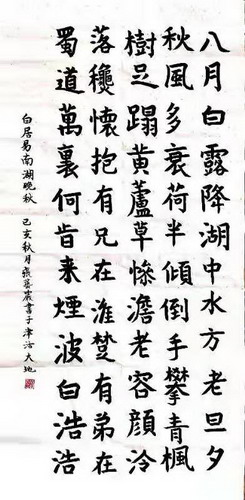 八月白露降湖中水方老旦夕
秋風多衰荷半傾倒手攀青楓
樹足蹋黄蘆草慘澹老容顏泠
落穐懷抱有兄在淮楚有弟在
蜀道萬裏何旹来煙波白浩浩
白居易南湖晚秋 己亥秋月張書于津沽大地